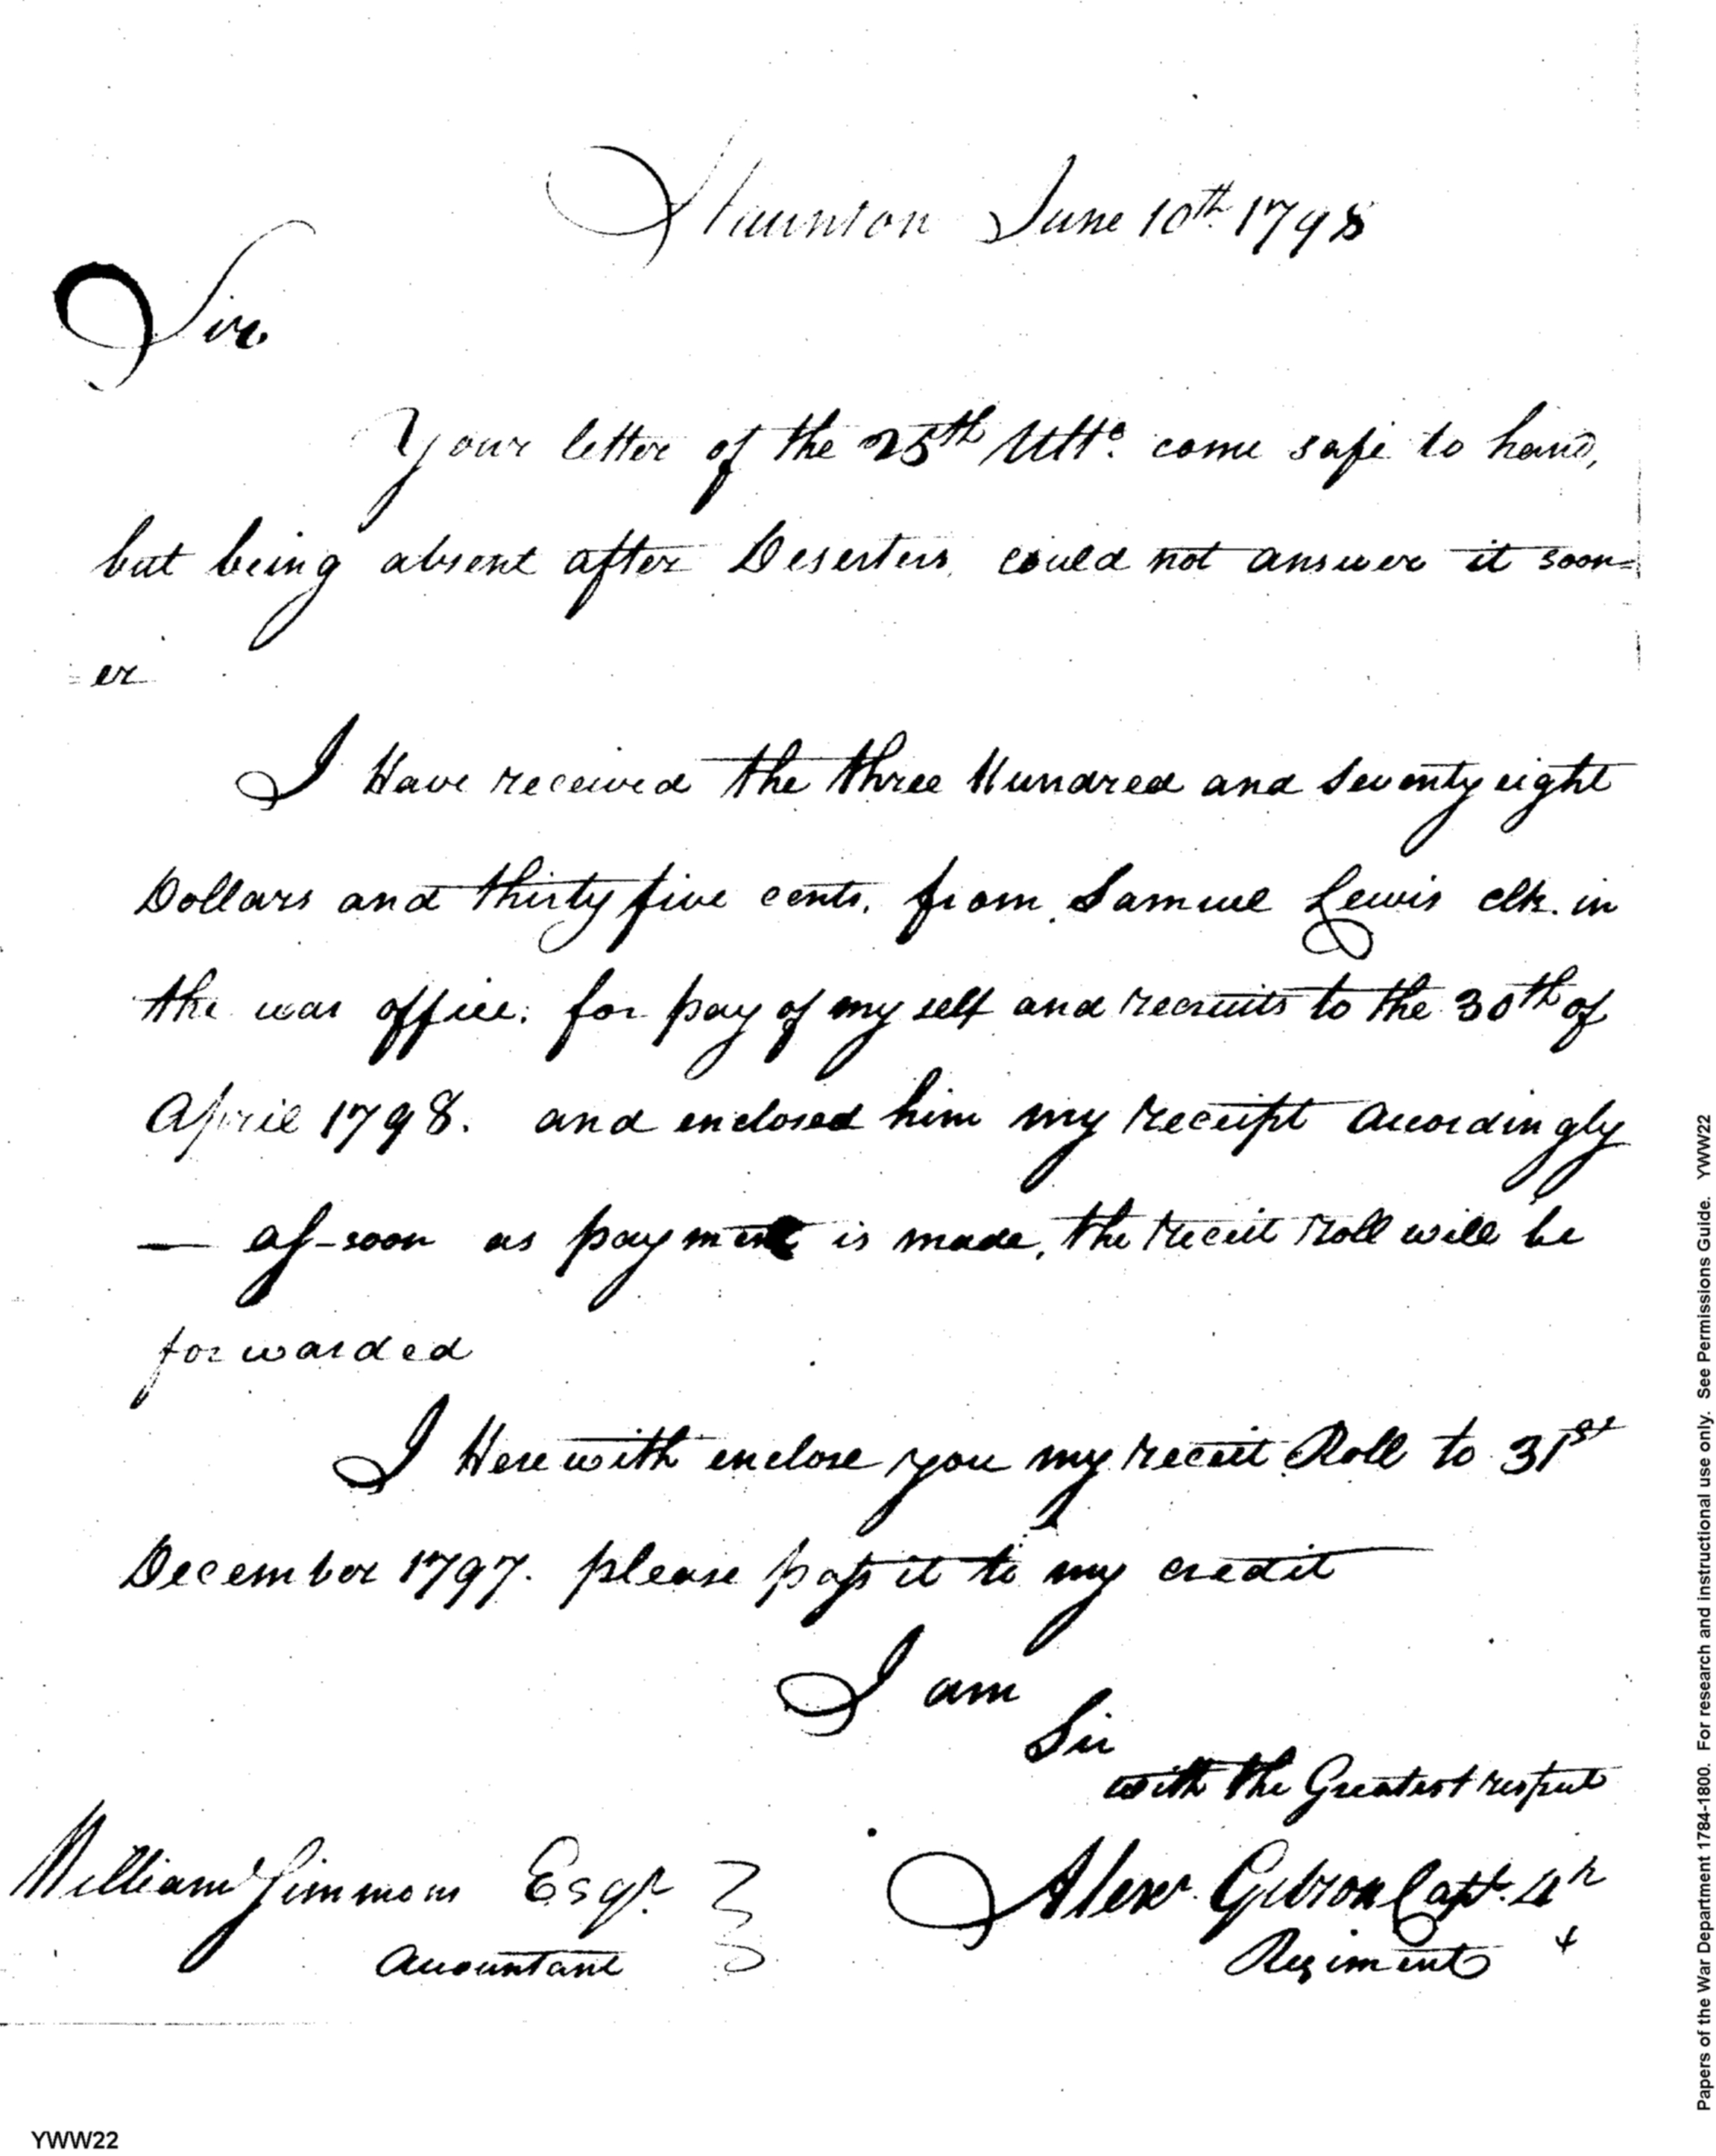 Staunton June 10th 1798
Sir
Your letter of the 25th Ulto. come safe to hand,
but being absent after Deserters, could not answer it soon=
=er
I Have received the three Hundred and seventy eight
Dollars and thirty five cents, from Samuel Lewis clk. in
the war office; for pay of my self and recruits to the 30th of
April 1798. and enclosed him my receipt accordingly
— as-soon as payment is made, the receit roll will be
forwarded
I Herewith enclose you my receit Roll to 31st
December 1797. please pass it to my credit
I am
Sir
with the Greatest respect
William Simmons Esqr.
Accountant
Alexr. Gibson Capt. 4h
Regiment
Papers of the War Department 1784-1800. For research and instructional use only. See Permissions Guide. YWW22
YWW22